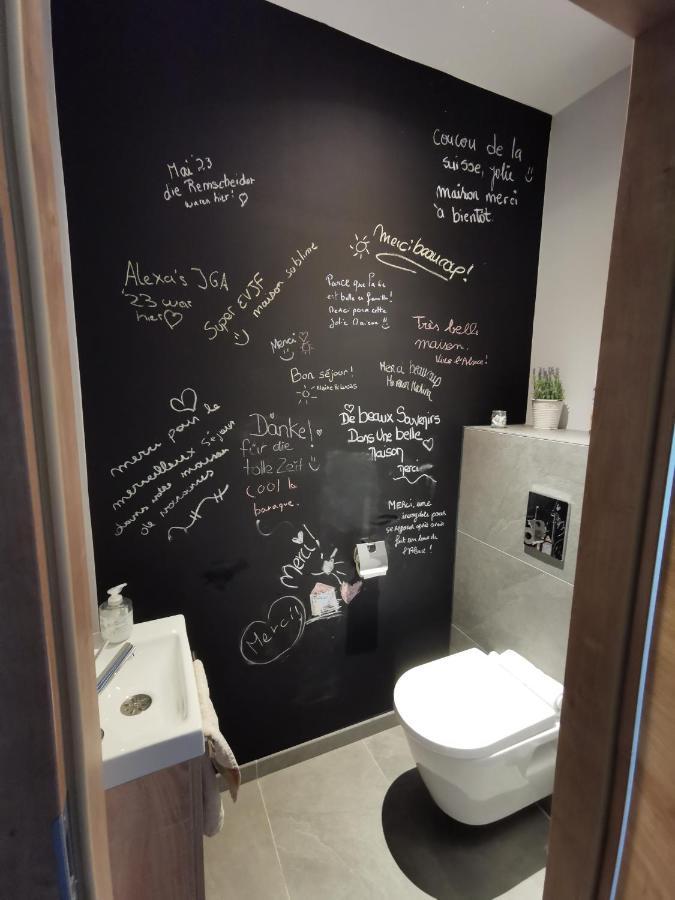 Mai '23
die Remscheider
waren hier!
Coucou de la
suisse, jolie
maison merci
à bientôt.
Merci beaucoup!
Alexa's JGA
'23 war
hier
Super EVJF
maison sublime
Parce que la vie
est belle en famille!
Merci pour cette
jolie Maison
Très belle
maison.
Vive l'Alsace!
Merci
Bon séjour!
Merci beaucoup
merci pour le
merveilleux séjour
dans votre maison
de vacances
Danke!
für die
tolle Zeit
cool la
baraque.
De beaux Souvenirs
Dans Une belle
Maison
Merci
Merci, une
incroyable pause
se reposer après avoir
fait un tour de
l'Alsace!
merci!
Merci